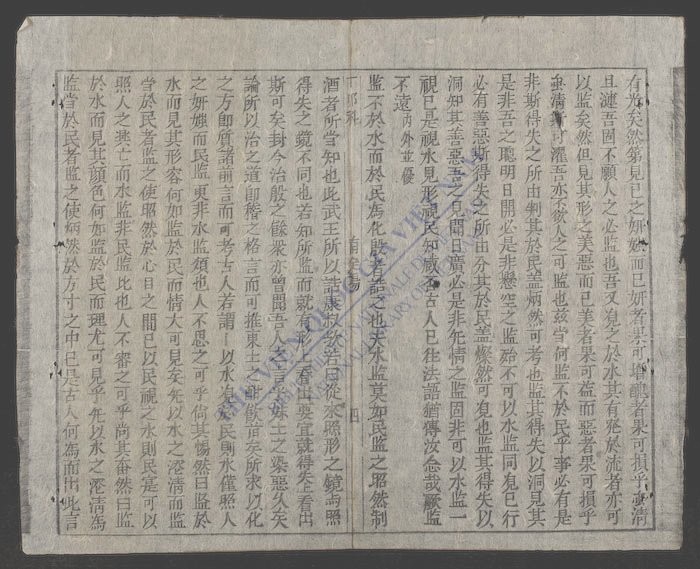 有光矣然第見已之妍媸而已妍者果可增醜者果可損乎
且漣吾固不願人之必監也吾又見之於水其有發於流者亦可
以監矣然但見其形之美惡而已美者果可益而惡者果可損乎
吾亦不欲人之可監也茲當何監不於民乎事必有是
非斯得失之所由判其於民盖炳然可考也監其得失以洞見其
是非吾之聰明日開必是非懸空之監殆不可以水監同見已行
必有善惡斯得失之所由分其於民盖燦然可見也監其得失以
洞知其善惡吾之見聞日廣必是非死情之監固非可以水監一
視已是視水見形視民知戚否古人已往法語猶傳汝念哉厥監
不遠內外並優
監不於水而於民為化殷者詰之也夫水監莫如民監之昭然制
酒者所當知也此武王所以誥康叔歟若曰從來照形之鏡與照
得失之鏡不同也若知所監而就有形上看出要宜就得失上看出
斯可矣封今治殷之餘衆亦曾聞吾人之言乎妹土之染惡久矣
論所以治之道即稽之格言而可推東土肆酗前矣所求以化
之方即質諸前言而可考古人若謂以水見民則水僅照人
之妍媸而民監更非水監類也人不思之可乎尚其惕然曰監於
水而見其形容何如監於民而情大可見矣毋以水之澄清而監
當於民者監之使昭然於心目之間已以民視之水則民寔可以
照人之興亡而水監非民監比也人不審之可乎尚其奮然曰監
於水而見其顏色何如監於民而理尤可見乎毋以水之澄清為
監當於民者監之使炳然於方寸之中已是古人何為而出此言
四
THƯ VIỆN QUỐC GIA VIỆT NAM
NATIONAL LIBRARY OF VIETNAM